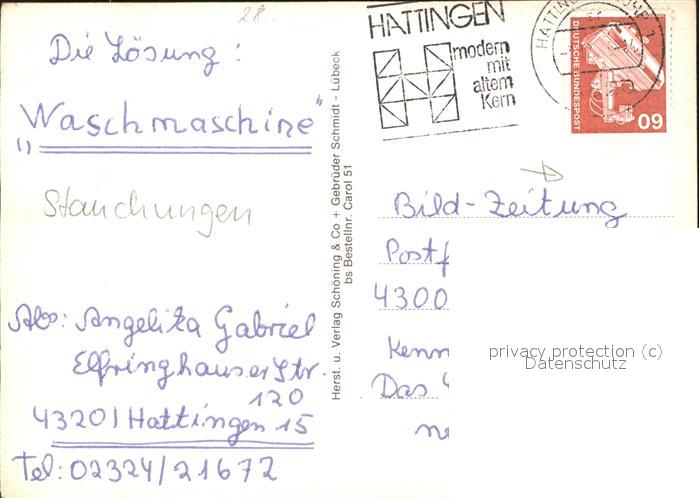 28.
Die Lösung:
"Waschmaschine"
Stauchungen
Abs: Angelika Gabriel
Elfringhauser Str.
120
43201 Hattingen 15
Tel: 02324/21672
Herst. u. Verlag Schöning & Co + Gebrüder Schmidt - Lübeck
bs Bestellnr. Carol 51
HATTINGEN
modern
mit
altem
Kern
HATTINGEN
DEUTSCHE BUNDESPOST
60
Bild-Zeitung
Postf
4300
Kenn
Das
privacy protection (c)
Datenschutz